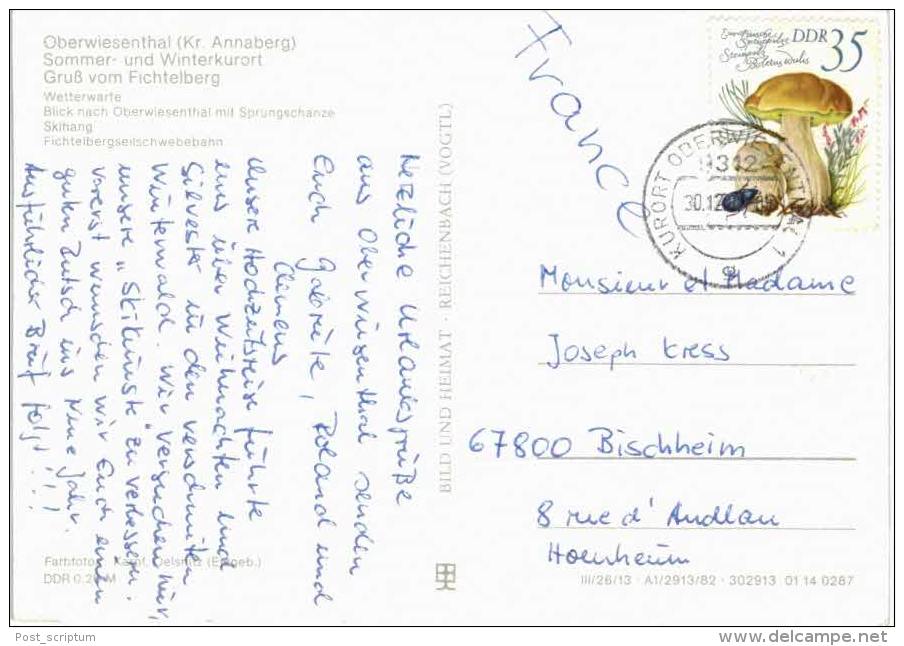 Oberwiesenthal (Kr. Annaberg)
Sommer- und Winterkurort
Gruß vom Fichtelberg
Wetterwarte
Blick nach Oberwiesenthal mit Sprungschanze
Skihang
Fichtelbergseilschwebebahn
Herzliche Urlaubsgrüße
aus Oberwiesenthal senden
Euch Gabriele, Roland und
Clemens
Unsere Hochzeitsreise führte
uns über Weihnachten und
Silvester in den verschneiten
Winterwald. Wir versuchen hier,
unsere „Ski-künste" zu verbessern.
Vorerst wünschen wir Euch einen
guten Rutsch ins Neue Jahr.
Ausführlicher Brief folgt!!!
Farbfotos: Oelsnitz (Erzgeb.)
DDR 0,20 M
BILD UND HEIMAT · REICHENBACH (VOGTL)
France
Europäische
Speisepilze
Steinpilz
Boletus edulis
DDR 35
KURORT OBERWIESENTHAL 1
9312
30.12
a
Monsieur et Madame
Joseph Kress
67800 Bischheim
8 rue d'Andlau
Hoenheim
III/26/13 · A1/2913/82 · 302913 01 14 0287
Post_scriptum
www.delcampe.net